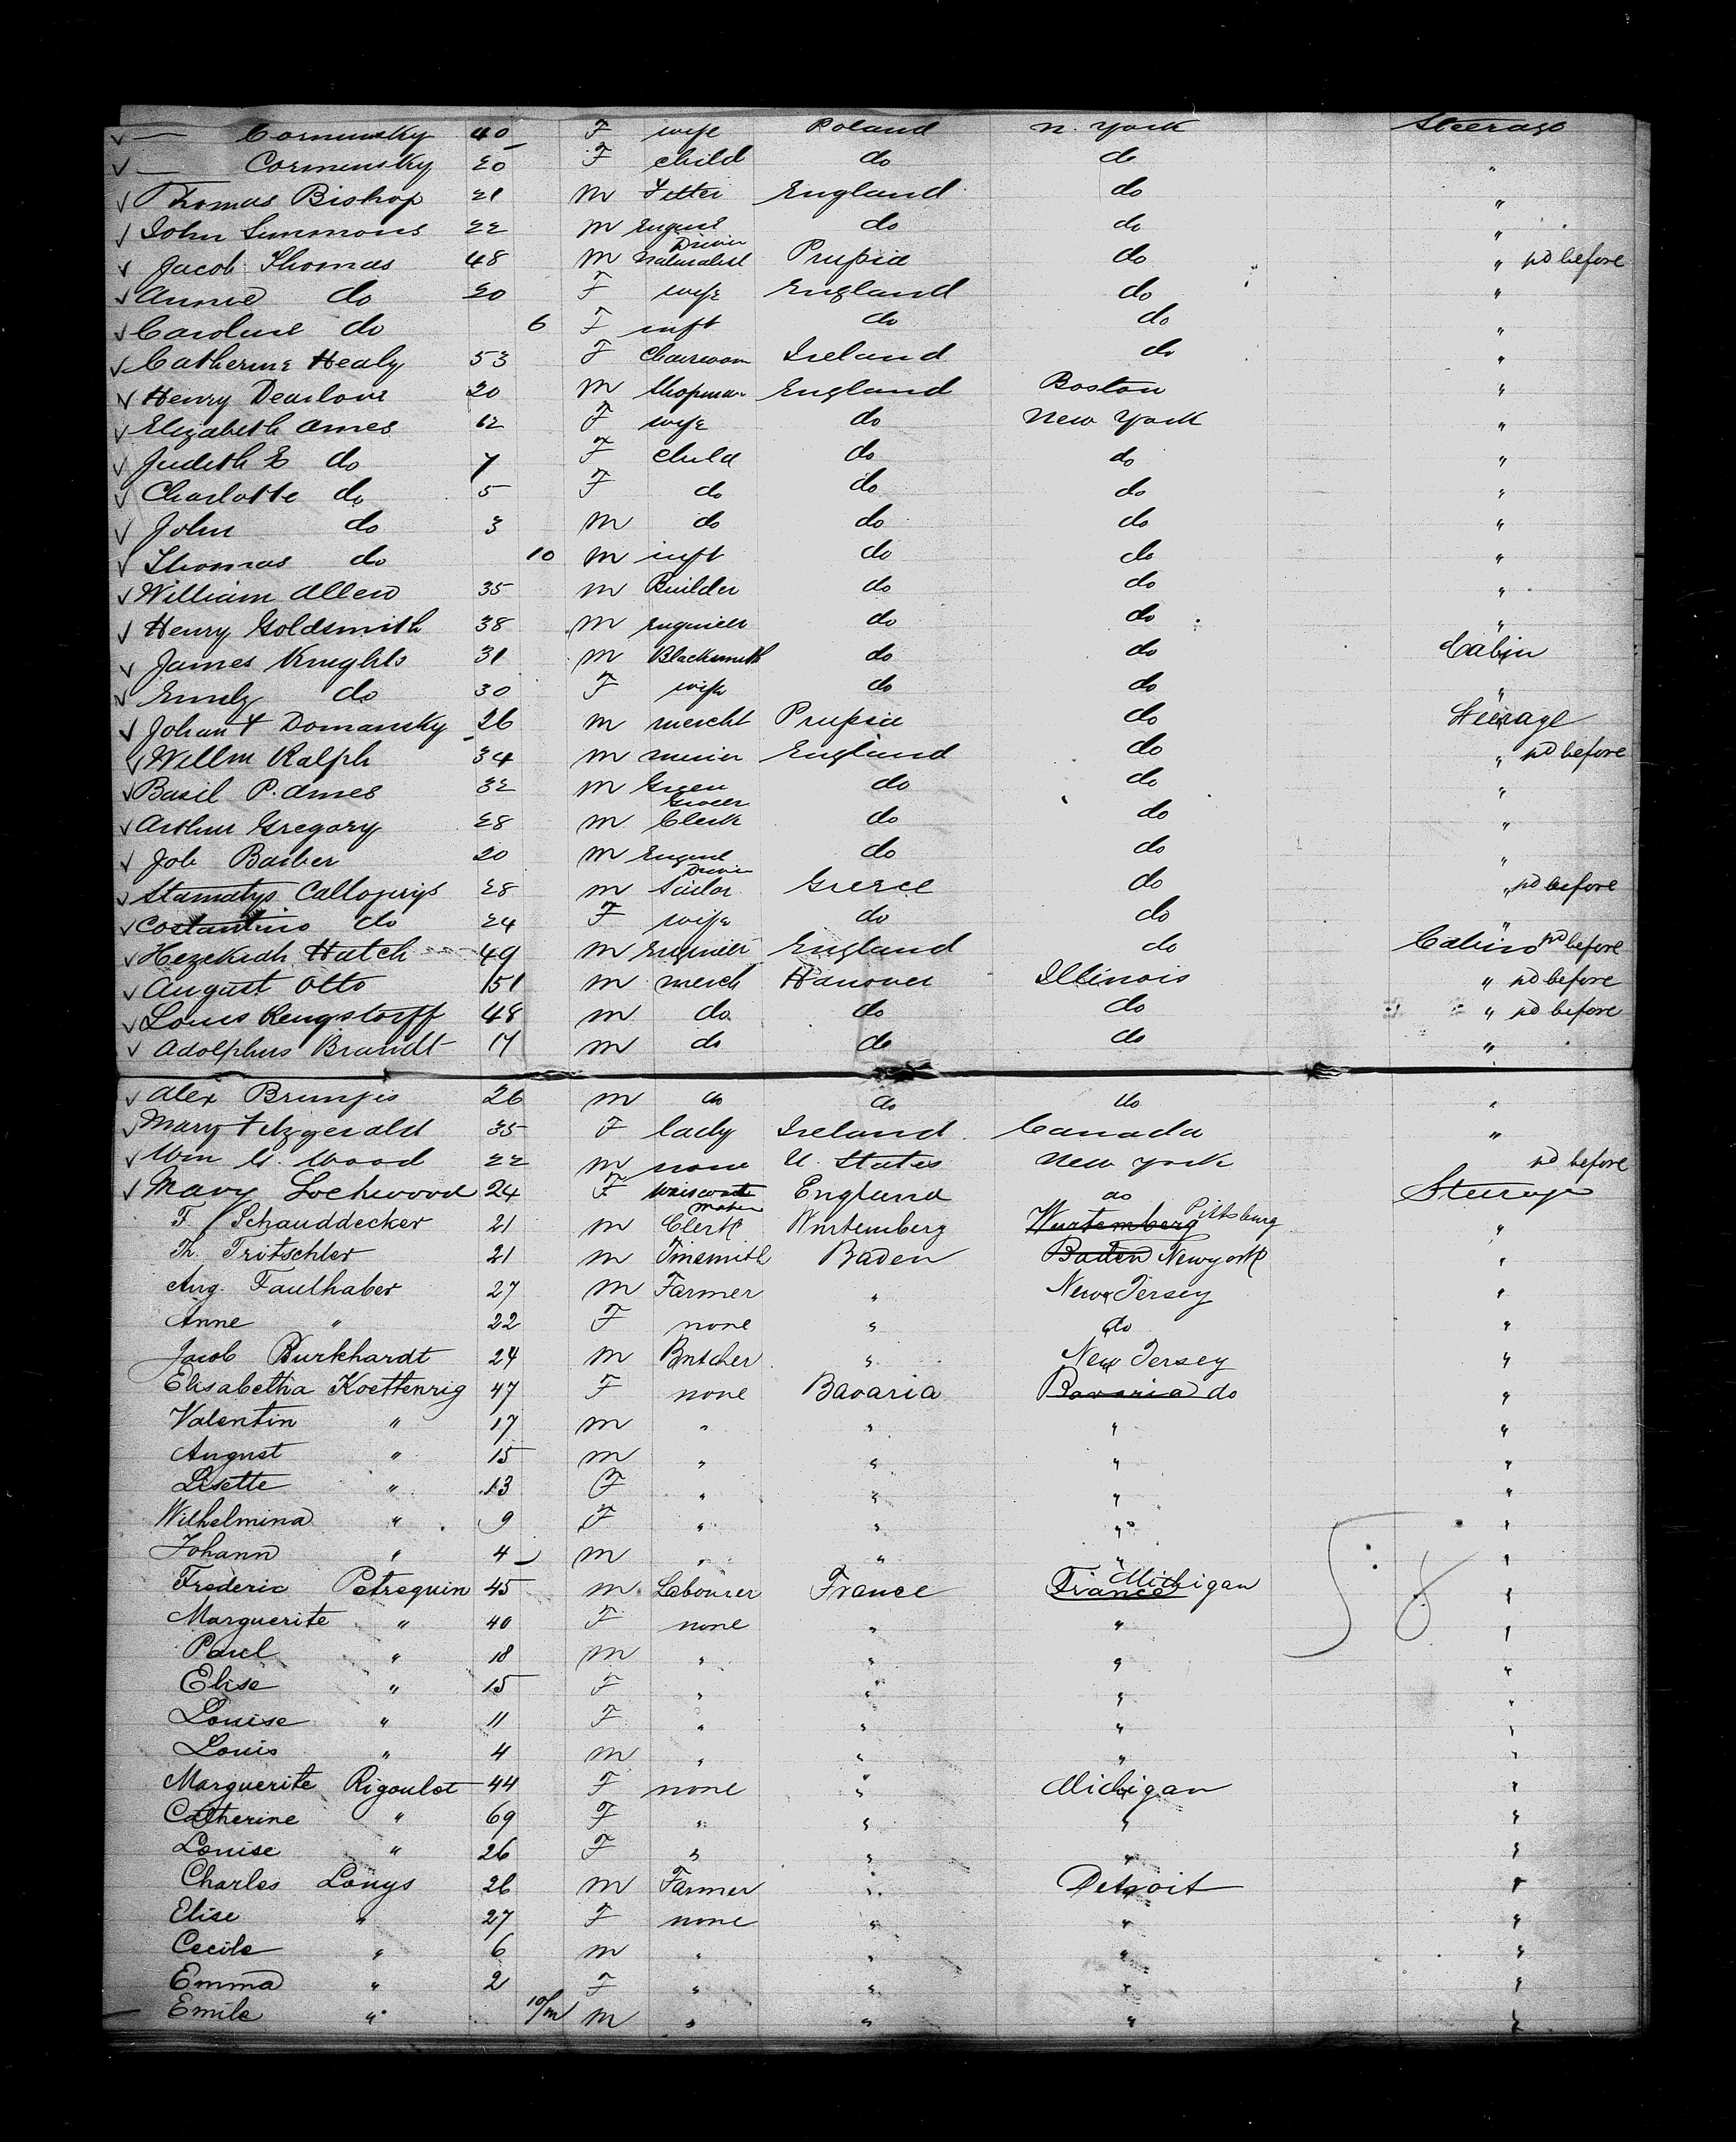 ✓ — Corminsky 40 F wife Poland N. York Steerage
✓ — Corminsky 20 F child do do "
✓ Thomas Bishop 21 m Fitter England do "
✓ John Simmons 22 m Engine Driver do do "
✓ Jacob Thomas 48 m Naturalist Prussia do " no before
✓ Annie do 20 F wife England do "
✓ Caroline do 6 F inft do do "
✓ Catherine Healy 53 F Charwom Ireland do "
✓ Henry Dearlove 20 m Shopman England Boston "
✓ Elizabeth Ames 62 F wife do New York "
✓ Judith E do 7 F child do do "
✓ Charlotte do 5 F do do do "
✓ John do 3 m do do do "
✓ Thomas do 10 m inft do do "
✓ William Allen 35 m Builder do do "
✓ Henry Goldsmith 38 m Engineer do do "
✓ James Knights 31 m Blacksmith do do Cabin
✓ Emily do 30 F wife do do "
✓ Johan F Domansky 26 m mercht Prussia do Steerage
✓ Willm Ralph 34 m miner England do " no before
✓ Basil P. Ames 32 m Green Grocer do do "
✓ Arthur Gregory 28 m Clerk do do "
✓ Job Barber 20 m Engine Driver do do "
✓ Stamatys Callogerys 28 m Sailor Greece do " no before
✓ Costantino do 24 F wife do do "
✓ Hezekiah Hatch 49 m Engineer England do Cabin no before
✓ August Otto 51 m merch Hanover Illinois " no before
✓ Louis Rengstorff 48 m do do do " no before
✓ Adolphus Brandt 17 m do do do "
✓ Alex 26 m do do do "
✓ Mary Fitzgerald 35 F lady Ireland Canada "
✓ Wm G. Wood 22 m none U. States New York no before
✓ Mary Lockwood 24 F England do Steerage
F. Schauddecker 21 m Clerk Wurtemberg Wurtemberg Pittsburg "
Th. Tritschler 21 m Tinsmith Baden Baden Newyork "
Aug. Faulhaber 27 m Farmer " New Jersey "
Anne " 22 F none " do "
Jacob Burkhardt 24 m Butcher " New Jersey "
Elisabetha Koettenrig 47 F none Bavaria Bavaria do "
Valentin " 17 m " " " "
August " 15 m " " " "
Lisette " 13 F " " " "
Wilhelmina " 9 F " " " "
Johann " 4 m " " " "
Frederic Petrequin 45 m Labourer France France Michigan "
Marguerite " 40 F none " " "
Paul " 18 m " " " "
Elise " 15 F " " " "
Louise " 11 F " " " "
Louis " 4 m " " " "
Marguerite Rigoulot 44 F none " Michigan "
Catherine " 69 F " " " "
Louise " 26 F " " " "
Charles Lonys 26 m Farmer " Detroit "
Elise " 27 F none " " "
Cecile " 6 m " " " "
Emma " 2 F " " " "
Emile " 10/m m " " " "
58